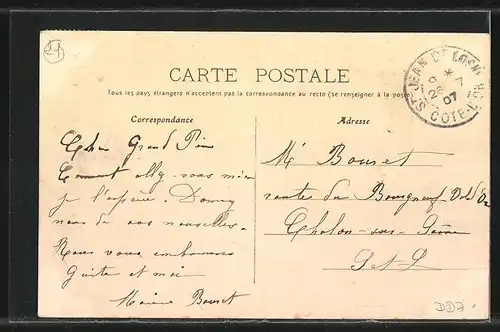 29
CARTE POSTALE
Tous les pays étrangers n'acceptent pas la correspondance au recto (se renseigner à la poste)
ST JEAN DE LOSNE
9 * 7
26
07
COTE-D'OR
Correspondance
Adresse
Cher Grand Père
Comment allez-vous mieux
je l'espère. Donnez
nous de vos nouvelles.
Nous vous embrassons
Guite et moi
Bouset
Mr Bouset
route du Bourgneuf
Chalon-sur-Saône
S-et-L
DDJ